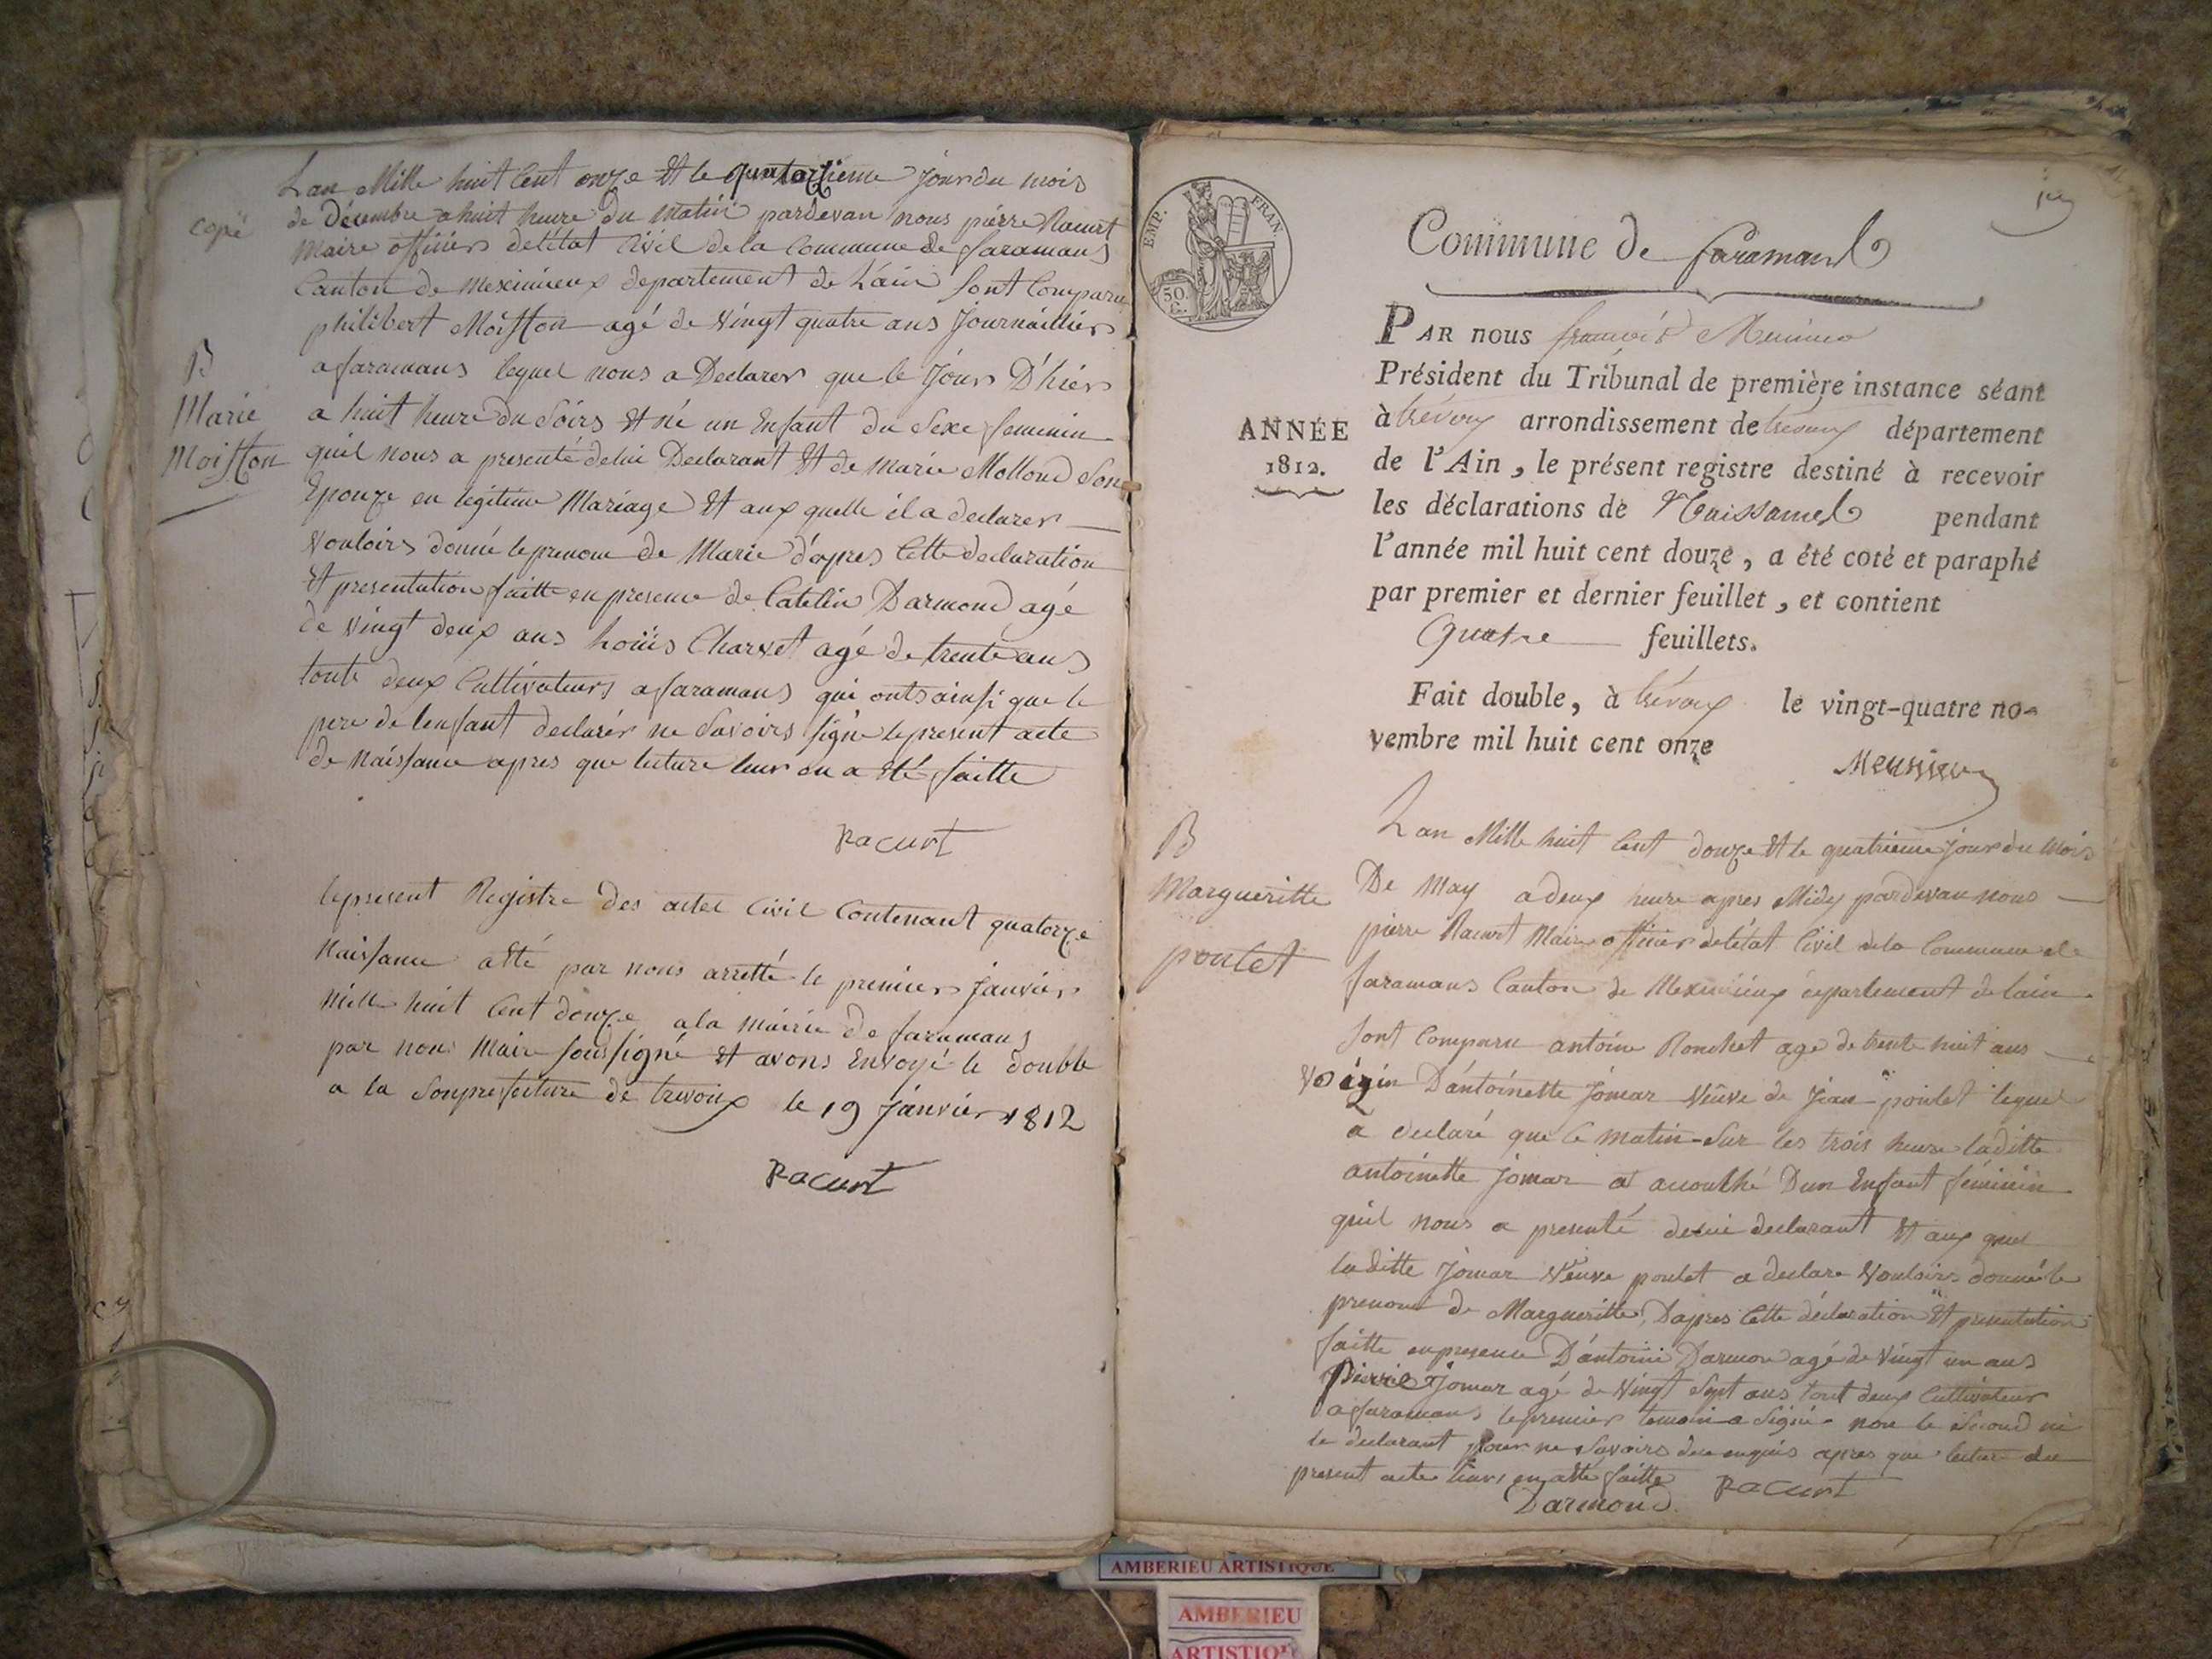 Lan Mille huit Cent onze Et le quatorzieme jour du mois
de Décembre a huit heure du Matin pardevan nous pierre Racurt
Maire officier deletat Civil de la Commune de faramans
Canton de Meximieux departement de Lain sont Comparu
philibert Moisson agé de Vingt quatre ans Journaillier
a faramans lequel nous a Declarer que le Jour D'hier
a huit heure du Soirs Et né un Enfant du Sexe feminin
quil nous a presenté delui Declarant Et de Marie Mollond Son
Epouze en legitime Mariage Et aux quelle il a declarer
Vouloirs donné le prenom de Marie d'apres Cette declaration
Et presentation faitte en presence de Catelin Darmond agé
de Vingt deux ans Loüis Charvet agé de trente ans
toute deux Cultivateurs a faramans qui onts ainsi que le
pere de lenfant declarér ne Savoirs signé le present acte
de Naissance apres que lecture leur en a Eté faitte
Racurt
copié
B
Marie
Moisson
le present Registre Des actes Civil Contenant quatorze
Naissance a Eté par nous arretté le premier janvier
mille huit Cent douze a la Mairie De faramans
par nous Maire soussigné Et avons Envoyé le double
a la Souprefecture de trevoux le 19 janvier 1812
Racurt
EMP. FRAN
50.
C.
1er
Commune de faramans
PAR nous françois Meunier
Président du Tribunal de première instance séant
à trévoux arrondissement de trévoux département
de l'Ain, le présent registre destiné à recevoir
les déclarations de Naissances pendant
l'année mil huit cent douze, a été coté et paraphé
par premier et dernier feuillet, et contient
quatre feuillets.
Fait double, à trévoux le vingt-quatre no-
vembre mil huit cent onze
Meunier
ANNÉE
1812.
B
Margueritte
poulet
Lan Mille huit Cent douze Et le quatrieme jour du Mois
De May a deux heure apres Midy pardevan nous
pierre Racurt Maire officier deletat Civil dela Commune de
faramans Canton de Meximieux departement de lain
sont Comparu antoine Ronchet age de trente huit ans
Voizin D'antoinette Jomar Veuve de Jean poulet lequel
a declaré que Ce matin Sur les trois heure laditte
antoinette jomar a accouché Dun Enfant féminin
quil nous a presenté delui declarant Et aux quel
laditte Jomar Veuve poulet a declare Vouloirs donné le
prenom de Margueritte, Dapres Cette déclaration Et presentation
faitte en presence D'antoine Darmon agé de Vingt un ans
Pierre Jomar agé de Vingt Sept ans tout deux Cultivateur
a faramans le premier temoin a Signé non le Second ni
le declarant pour ne Savoirs de ce enquis apres que lecture du
present acte leurs en a Eté faitte Racurt
Darmond
AMBERIEU ARTISTIQUE
AMBERIEU
ARTISTIQUE